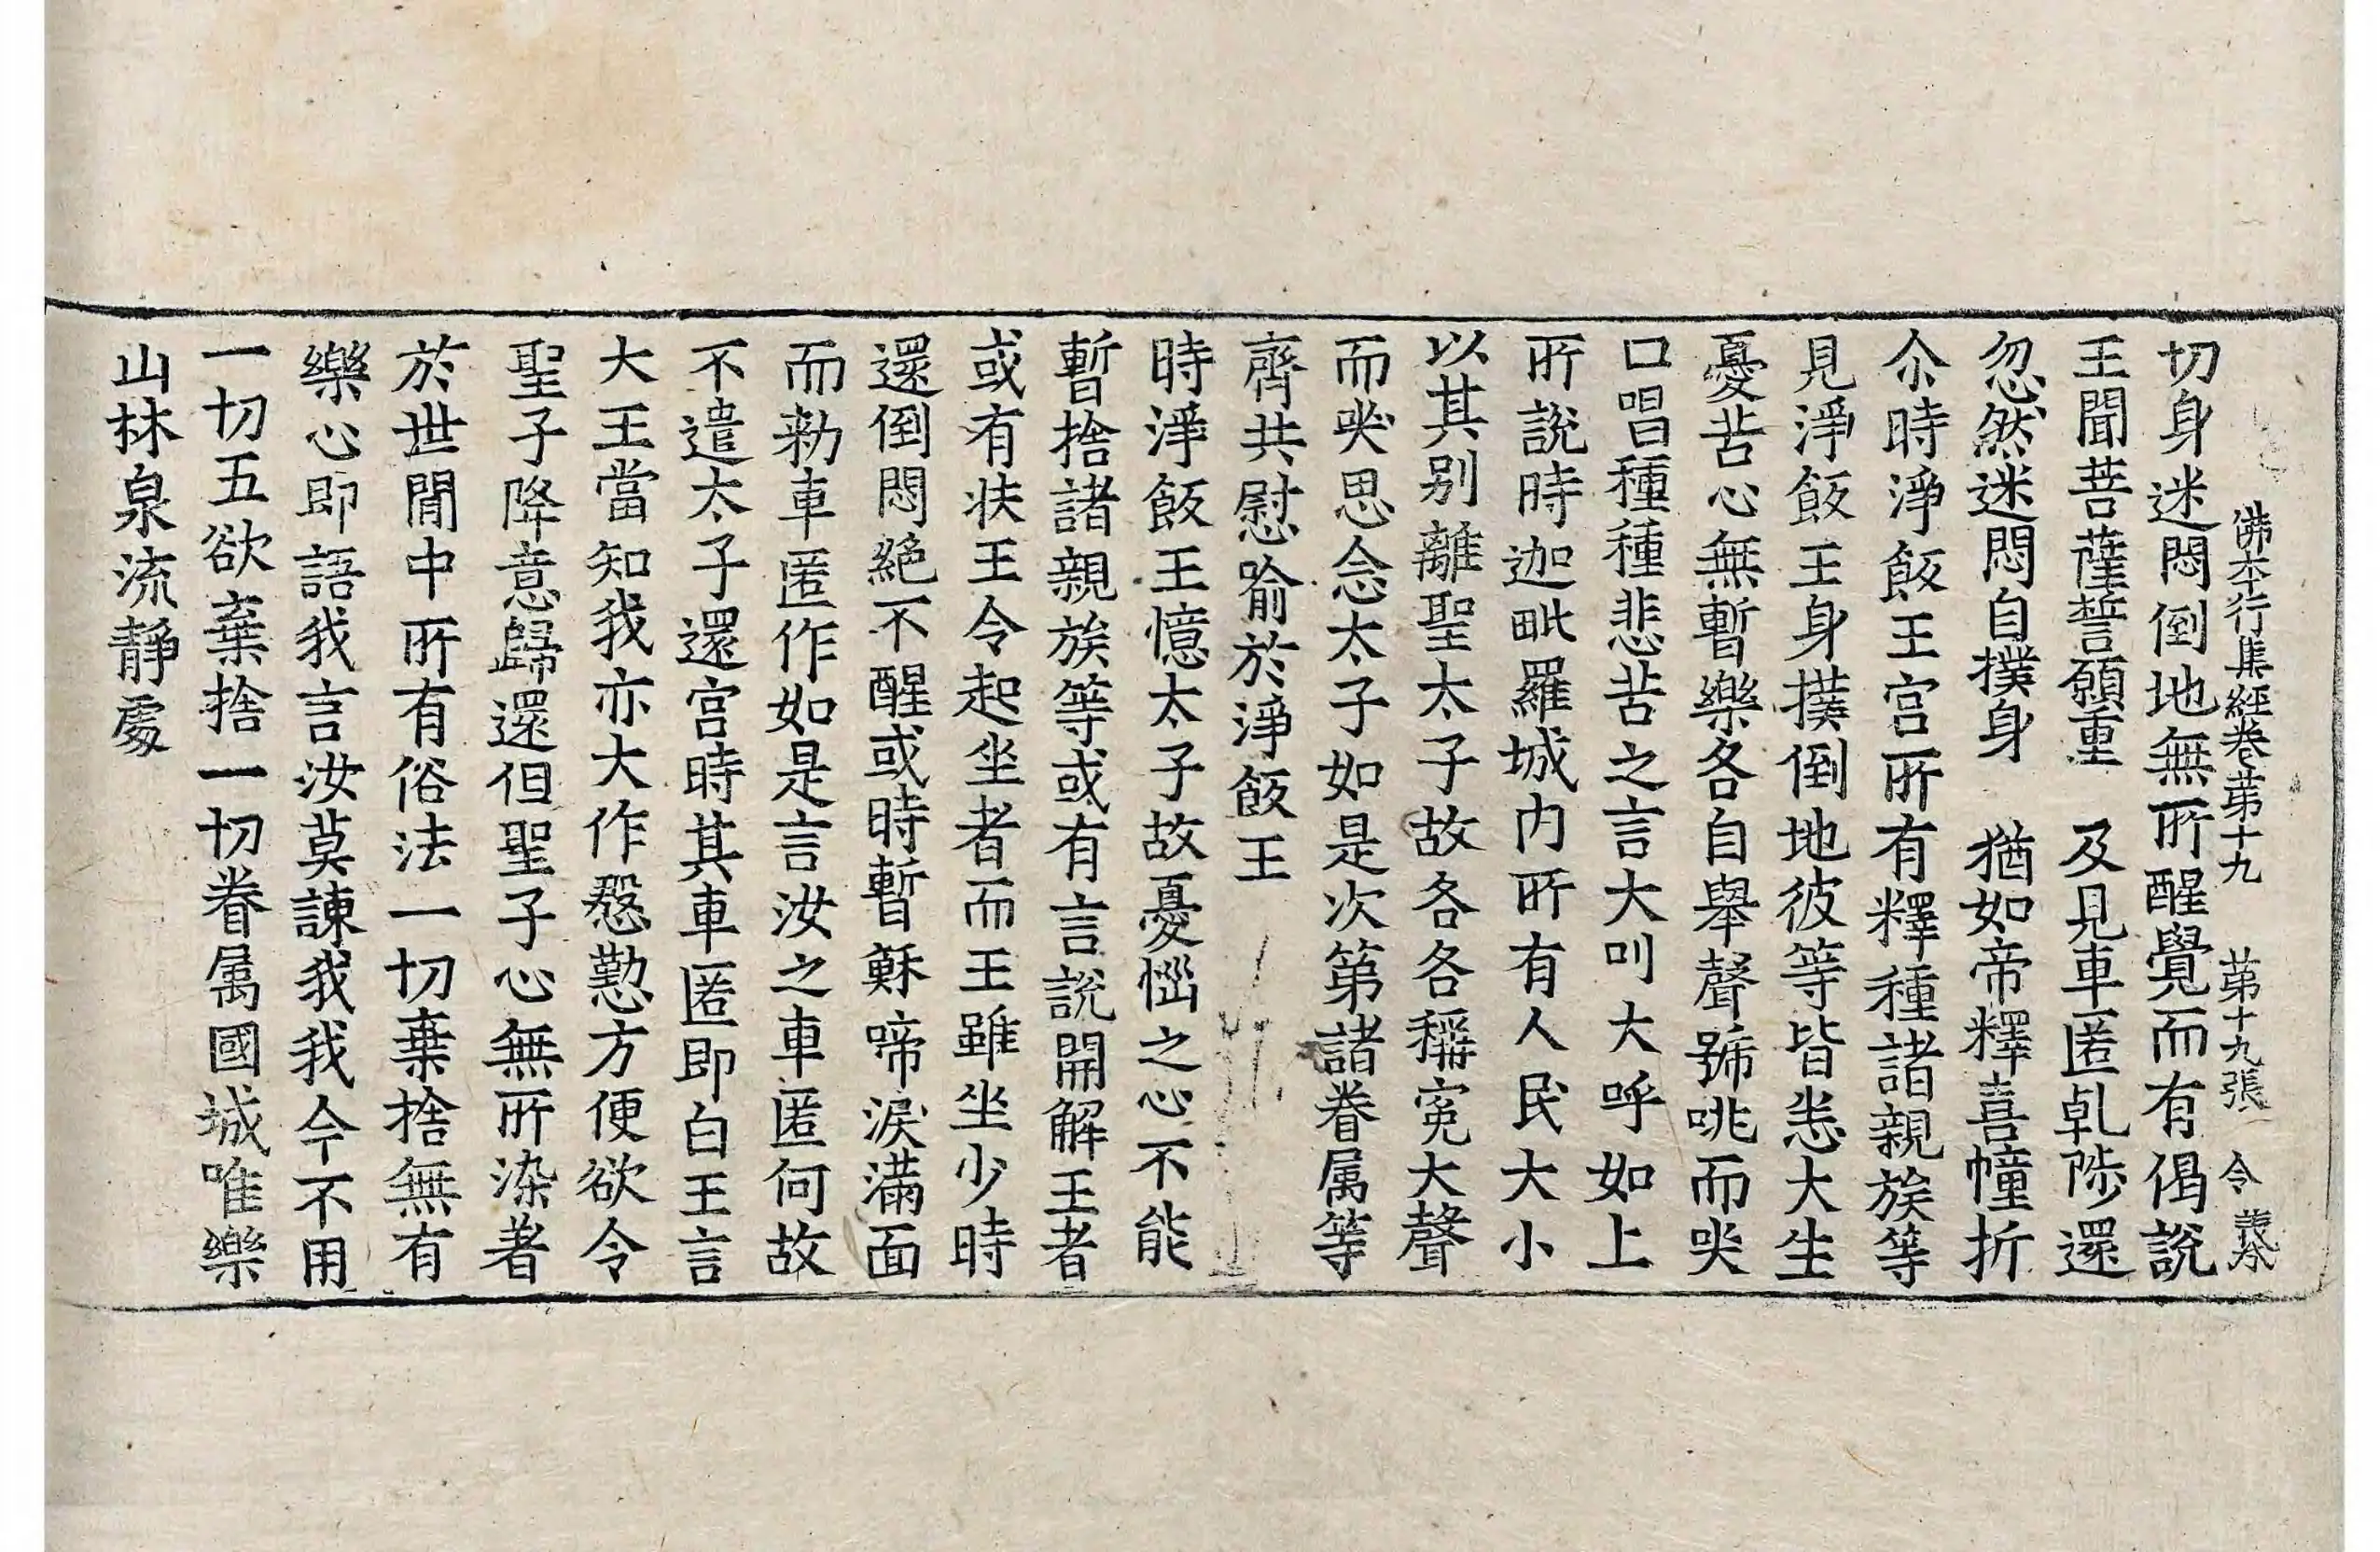 佛本行集經卷苐十九　苐十九張　令
切身迷悶倒地無所醒覺而有偈說
王聞菩薩誓願重　及見車匿乹陟還
忽然迷悶自撲身　猶如帝釋喜幢折
尒時淨飯王宫所有釋種諸親族等
見淨飯王身撲倒地彼等皆悉大生
憂苦心無暫樂各自舉聲號咷而哭
口唱種種悲苦之言大叫大呼如上
所說時迦毗羅城内所有人民大小
以其别離聖太子故各各稱寃大聲
而哭思念太子如是次第諸眷属等
齊共慰喻於淨飯王
時淨飯王憶太子故憂惱之心不能
暫捨諸親族等或有言說開解王者
或有扶王令起坐者而王雖坐少時
還倒悶絕不醒或時暫蘇啼淚滿面
而勑車匿作如是言汝之車匿何故
不遣太子還宫時其車匿即白王言
大王當知我亦大作慇懃方便欲令
聖子降意歸還但聖子心無所染著
於世間中所有俗法一切棄捨無有
樂心即語我言汝莫諫我我今不用
一切五欲棄捨一切眷属國城唯樂
山林泉流静處